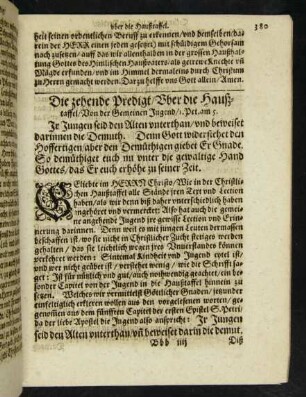 vber die Haußtaffel.
380
heit seinen ordenlichen Beruff zu erkennen/ vnd denselben/ da-
rein der HERR einen jeden gesetzet/ mit schüldigem Gehorsam
nach zusetzen/ auff das wir allenthalben in der grossen Haußhal-
tung Gottes des Himlischen Haußvaters/ als getrewe Knechte vñ
Mägde erfunden/ vnd im Himmel dermaleins durch Christum
zu Herrn gemacht werden. Dar zu helffe vns Gott allein/ Amen.
Die zehende Predigt/ Vber die Hauß-
taffel/ Von der Gemeinen Jugend/ 1. Pet. am 5.
Jr Jungen seid den Alten vnterthan/ vnd beweiset
darinnen die Demuth. Denn Gott widerstehet den
Hoffertigen/ aber den Demüthigen giebet Er Gnade.
So demüthiget euch nu vnter die gewaltige Hand
Gottes/ das Er euch erhöhe zu seiner Zeit.
GEliebte im HERRN Christo/ Wie in der Christli-
chen Haußtaffel alle Stände jren Text vnd Lection
haben/ als wir denn biß daher vnterschiedlich haben
angehöret vnd vermercket: Also hat auch die gemei-
ne angehende Jugend jre gewisse Lection vnd Erin-
nerung darinnen. Denn weil es mit jungen Leuten dermassen
beschaffen ist/ wo sie nicht in Christlicher Zucht stetiges werden
gehalten/ das sie leichtlich wegen jres Vnuerstandes können
verkehret werden: Sintemal Kindheit vnd Jugend eytel ist/
vnd wer nicht geübet ist/ verstehet wenig/ wie die Schrifft sa-
get: Ist für nützlich vnd gut/ auch nothwendig geachtet/ ein be-
sonder Capitel von der Jugend in die Haußtaffel hinnen zu
setzen. Welches wir vermittelst Göttlicher Gnaden/ jtzunder
einfeltiglich erklären wollen aus den vorgelesenen worten/ ge-
genommen aus dem fünfften Capitel der ersten Epistel S. Petri/
da der liebe Apostel die Jugend also anspricht: Jr Jungen
seid den Alten vnterthan/ vñ beweiset darin die demut.
Bbb iiij
Diß